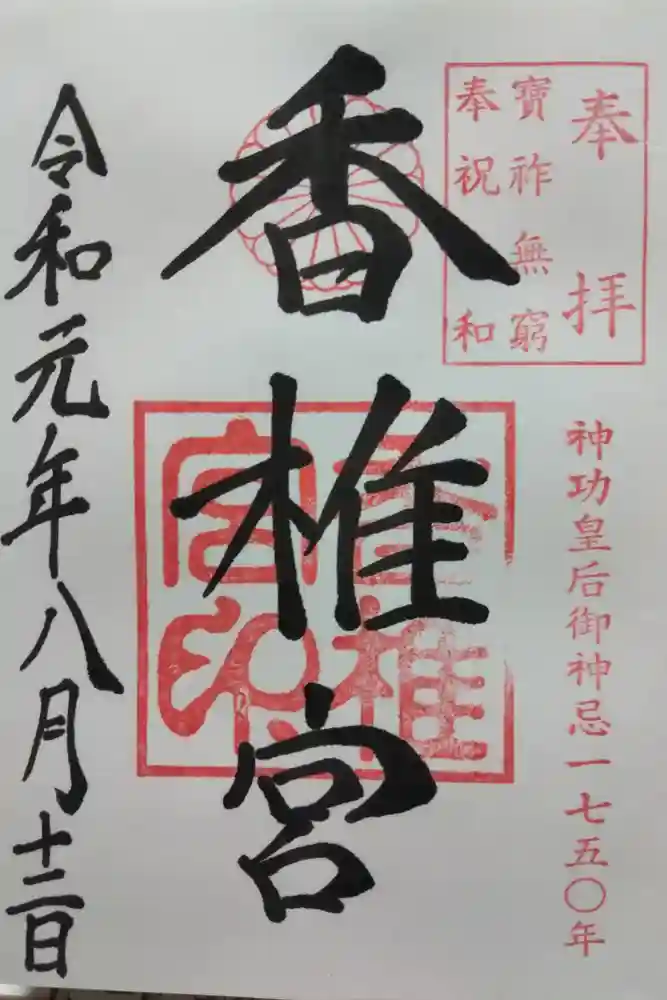 奉拝
寶祚無窮
奉祝 和
神功皇后御神忌一七五〇年
香椎宮
香椎宮印
令和元年八月十二日